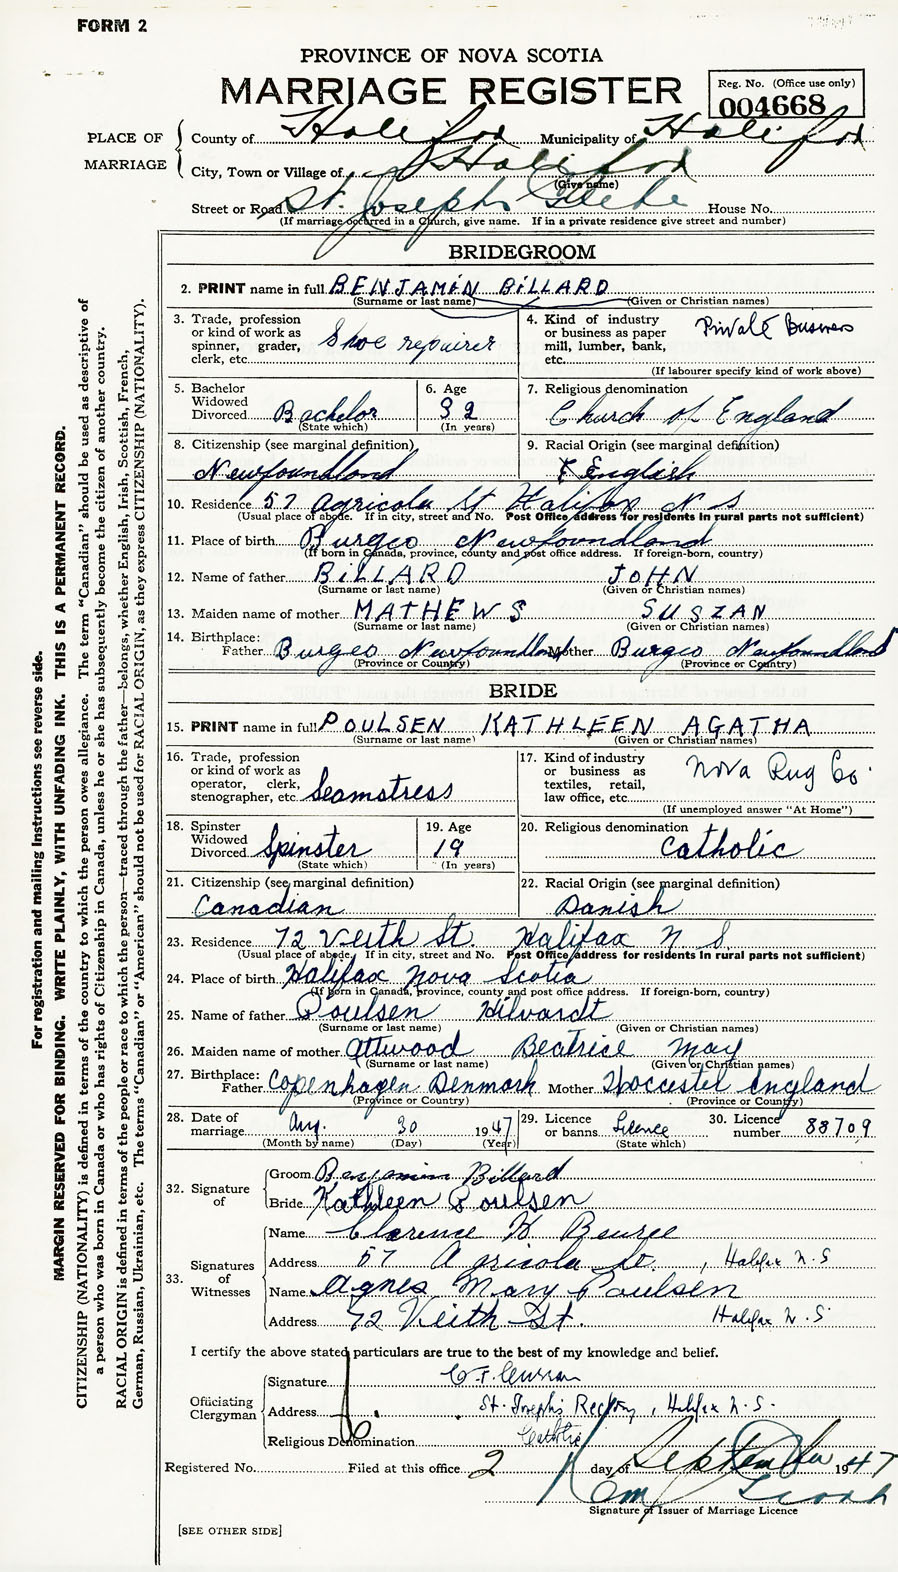 FORM 2
PROVINCE OF NOVA SCOTIA
MARRIAGE REGISTER
Reg. No. (Office use only)
004668
PLACE OF MARRIAGE
County of Halifax Municipality of Halifax
City, Town or Village of Halifax
(Give name)
Street or Road St. Josephs Glebe House No.
(If marriage occurred in a Church, give name. If in a private residence give street and number)
BRIDEGROOM
2. PRINT name in full BENJAMIN BILLARD
(Surname or last name) (Given or Christian names)
3. Trade, profession or kind of work as spinner, grader, clerk, etc. Shoe repairer
4. Kind of industry or business as paper mill, lumber, bank, etc. Private Business
(If labourer specify kind of work above)
5. Bachelor Widowed Divorced Bachelor
(State which)
6. Age 32
(In years)
7. Religious denomination
Church of England
8. Citizenship (see marginal definition)
Newfoundland
9. Racial Origin (see marginal definition)
English
10. Residence 57 Agricola St Halifax N S
(Usual place of abode. If in city, street and No. Post Office address for residents in rural parts not sufficient)
11. Place of birth Burgeo Newfoundland
(If born in Canada, province, county and post office address. If foreign-born, country)
12. Name of father BILLARD JOHN
(Surname or last name) (Given or Christian names)
13. Maiden name of mother MATHEWS SUSZAN
(Surname or last name) (Given or Christian names)
14. Birthplace:
Father Burgeo Newfoundland Mother Burgeo Newfoundland
(Province or Country) (Province or Country)
BRIDE
15. PRINT name in full POULSEN KATHLEEN AGATHA
(Surname or last name) (Given or Christian names)
16. Trade, profession or kind of work as operator, clerk, stenographer, etc. Seamstress
17. Kind of industry or business as textiles, retail, law office, etc. Nova Rug Co.
(If unemployed answer "At Home")
18. Spinster Widowed Divorced Spinster
(State which)
19. Age
19
(In years)
20. Religious denomination
Catholic
21. Citizenship (see marginal definition)
Canadian
22. Racial Origin (see marginal definition)
Danish
23. Residence 72 Veith St. Halifax N S.
(Usual place of abode. If in city, street and No. Post Office address for residents in rural parts not sufficient)
24. Place of birth Halifax Nova Scotia
(If born in Canada, province, county and post office address. If foreign-born, country)
25. Name of father Poulsen Hilvardt
(Surname or last name) (Given or Christian names)
26. Maiden name of mother Attwood Beatrice May
(Surname or last name) (Given or Christian names)
27. Birthplace:
Father Copenhagen Denmark Mother England
(Province or Country) (Province or Country)
28. Date of marriage Aug. 30 1947
(Month by name) (Day) (Year)
29. Licence or banns Licence
(State which)
30. Licence number 88709
32. Signature of
Groom Benjamin Billard
Bride Kathleen Poulsen
33. Signatures of Witnesses
Name Clarence
Address 57 Agricola St., Halifax N. S
Name Agnes Mary Poulsen
Address 72 Veith St. Halifax N. S
I certify the above stated particulars are true to the best of my knowledge and belief.
Officiating Clergyman
Signature
Address St. Joseph's Rectory, Halifax N. S.
Religious Denomination Catholic
Registered No. Filed at this office 2 day of September 1947
Signature of Issuer of Marriage Licence
[SEE OTHER SIDE]
For registration and mailing instructions see reverse side.
MARGIN RESERVED FOR BINDING. WRITE PLAINLY, WITH UNFADING INK. THIS IS A PERMANENT RECORD.
CITIZENSHIP (NATIONALITY) is defined in terms of the country to which the person owes allegiance. The term "Canadian" should be used as descriptive of
a person who was born in Canada or who has rights of Citizenship in Canada, unless he or she has subsequently become the citizen of another country.
RACIAL ORIGIN is defined in terms of the people or race to which the person—traced through the father—belongs, whether English, Irish, Scottish, French,
German, Russian, Ukrainian, etc. The terms "Canadian" or "American" should not be used for RACIAL ORIGIN, as they express CITIZENSHIP (NATIONALITY).